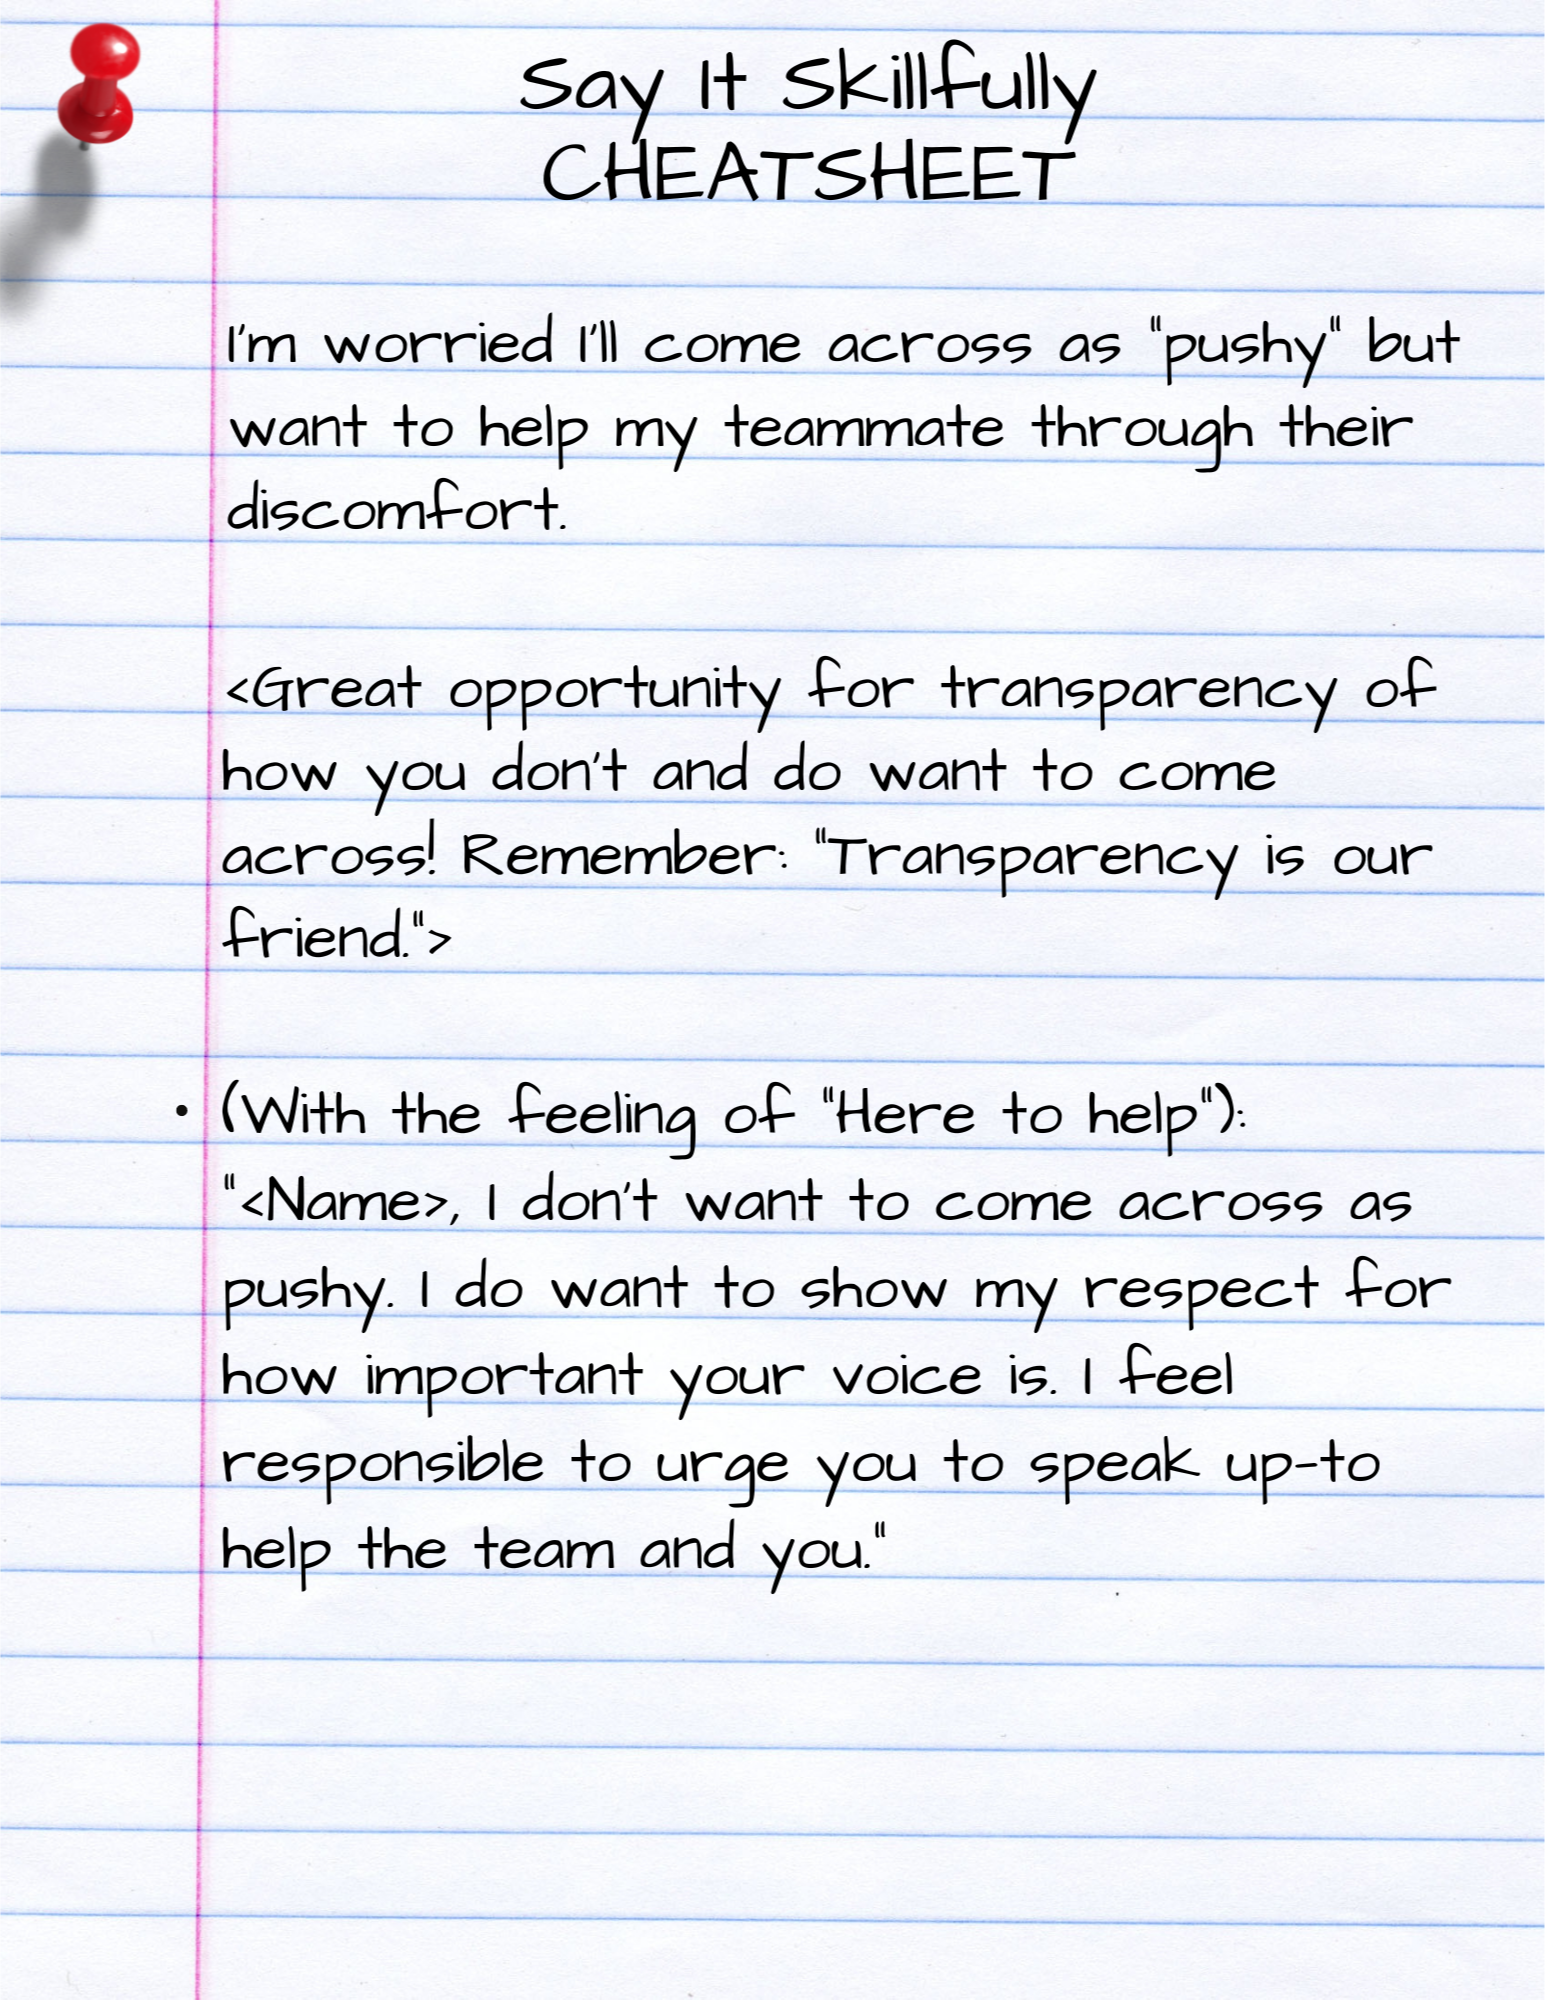 Say It Skillfully
CHEATSHEET
I'm worried I'll come across as "pushy" but
want to help my teammate through their
discomfort.
<Great opportunity for transparency of
how you don't and do want to come
across! Remember: "Transparency is our
friend.">
• (With the feeling of "Here to help"):
"<Name>, I don't want to come across as
pushy. I do want to show my respect for
how important your voice is. I feel
responsible to urge you to speak up-to
help the team and you."